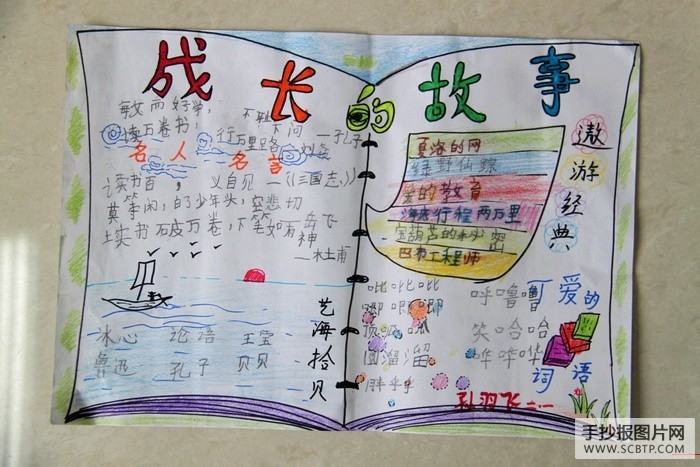 成长的故事
敏而好学，不耻
下问 —孔子
读万卷书，行万里路 —刘彝
名人名言
读书百，义自见 —《三国志》
莫等闲，白了少年头，空悲切
—岳飞
书破万卷，下笔如有神
—杜甫
艺海拾贝
冰心 论语
鲁迅 孔子 贝贝
夏洛的网
绿野仙踪
爱的教育
海底行程两万里
宝葫芦的秘密
巴布工程师
遨游经典
可爱的词语
呼噜噜
笑哈哈
圆溜溜 哗哗哗
胖乎乎
二·一
手抄报图片网
WWW.SCBTP.COM